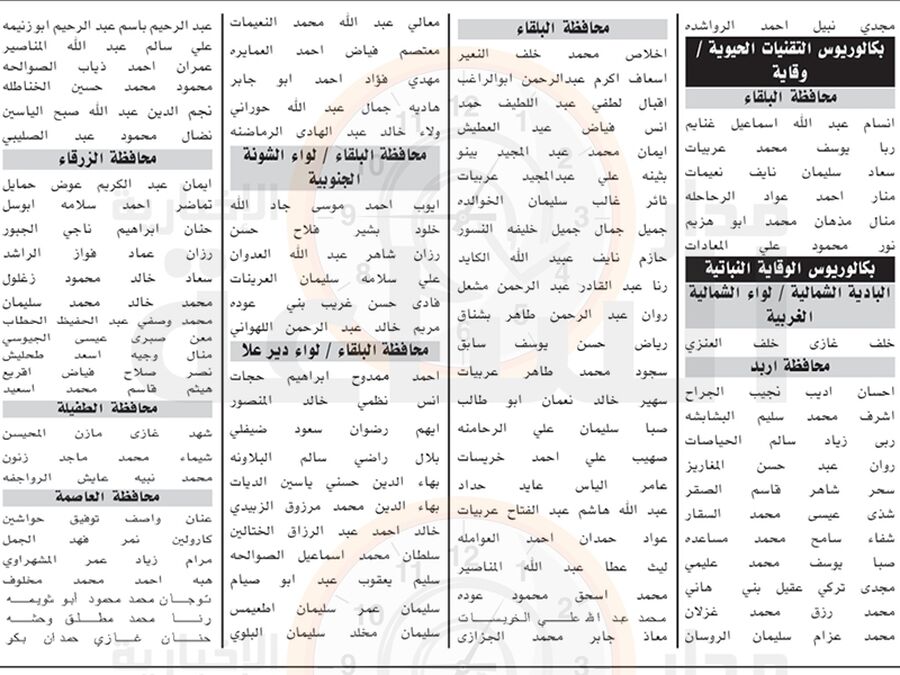 مجدي نبيل احمد الرواشده
بكالوريوس التقنيات الحيوية /
وقاية
محافظة البلقاء
انسام عبد الله اسماعيل غنايم
ربا يوسف محمد عربيات
سعاد سليمان نايف نعيمات
منار احمد عواد الرحاحله
منال مذهان محمد ابو هزيم
نور محمود علي المعادات
بكالوريوس الوقاية النباتية
البادية الشمالية / لواء الشمالية
الغربية
خلف غازى خلف العنزي
محافظة اربد
احسان اديب نجيب الجراح
اشرف محمد سليم البشابشه
ربى زياد سالم الحياصات
روان عبد حسن المغاريز
سحر شاهر قاسم الصقر
شذى عيسى محمد السقار
شفاء سامح محمد مساعده
صبا يوسف محمد عليمي
مجدى تركي عقيل بني هاني
محمد رزق محمد غزلان
محمد عزام سليمان الروسان
محافظة البلقاء
اخلاص محمد خلف النعير
اسعاف اكرم عبدالرحمن ابوالراغب
اقبال لطفي عبد اللطيف حمد
انس فياض عيد العطيش
ايمان محمد عبد المجيد بينو
بثينه علي عبدالمجيد عربيات
ثائر غالب سليمان الخوالده
جميل جمال جميل خليفه النسور
حازم نايف عبد الله الكايد
رنا عبد القادر عبد الرحمن مشعل
روان عبد الرحمن طاهر بشناق
رياض حسن يوسف سابق
سجود محمد طاهر عربيات
سهير خالد نعمان ابو طالب
صبا سليمان علي الرحامنه
صهيب علي احمد خريسات
عامر الياس عايد حداد
عبد الله هاشم عبد الفتاح عربيات
عواد حمدان احمد العوامله
ليث عطا عبد الله المناصير
محمد اسحق محمود عوده
محمد عبد الله علي الخريسات
معاذ جابر محمد الجزازي
معالي عبد الله محمد النعيمات
معتصم فياض احمد العمايره
مهدي فؤاد احمد ابو جابر
هاديه جمال عبد الله حوراني
ولاء خالد عبد الهادى الرماضنه
محافظة البلقاء / لواء الشونة
الجنوبية
ايوب احمد موسى جاد الله
خلود بشير فلاح حسن
رزان شاهر عبد الله العدوان
علي سلامه سليمان العرينات
فادى حسن غريب بني عوده
مريم خالد عبد الرحمن اللهواني
محافظة البلقاء / لواء دير علا
احمد ممدوح ابراهيم حجات
انس نظمي خالد المنصور
ايهم رضوان سعود ضيفلي
بلال راضي سالم البلاونه
بهاء الدين حسني ياسين الديات
بهاء الدين محمد مرزوق الزبيدي
خالد احمد عبد الرزاق الختالين
سلطان محمد اسماعيل الصوالحه
سليم يعقوب عبد ابو صيام
سليمان عمر سليمان اطعيمس
سليمان مخلد سليمان البلوي
عبد الرحيم باسم عبد الرحيم ابوزنيمه
علي سالم عبد الله المناصير
عمران احمد ذياب الصوالحه
محمود محمد حسين الخناطله
نجم الدين عبد الله صبح الياسين
نضال محمود عبد الصليبي
محافظة الزرقاء
ايمان عبد الكريم عوض حمايل
تماضر احمد سلامه ابوسل
حنان ابراهيم ناجي الجبور
رزان عماد فواز الراشد
سعاد خالد محمود زغلول
محمد خالد محمد سليمان
محمد وصفي عبد الحفيظ الحطاب
معن صبرى عيسى الجيوسي
منال وجيه اسعد طحليش
نصر صلاح فياض اقريع
هيثم قاسم محمد اسعيد
محافظة الطفيلة
شهد غازى مازن المحيسن
شيماء محمد ماجد زنون
محمد نبيه عايش الرواجفه
محافظة العاصمة
عنان واصف توفيق حواشين
كارولين نمر فهد الجمل
مرام زياد عمر المشهراوي
هبه احمد محمد مخلوف
توجان محمد محمود أبو شويمه
رنا محمد مطلق وحشه
حنان غازي حمدان بكر